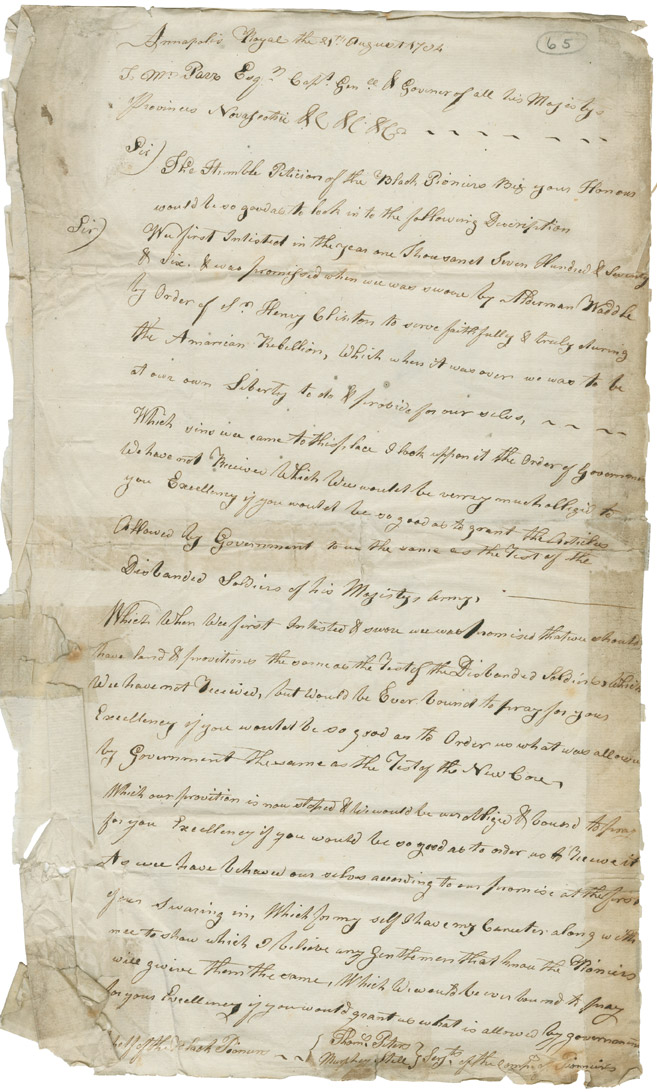 65
Annapolis Royal the 21st August 1784
To Mr Parr Esqr Capt Genll & Goviner of all his Majestys
Provinces Novascotsie &C &C &C
Sir) The Humble Peticion of the Black Pioniers Big your Honour
would be so good as to look in to the following Discription
Sir) We first Intisted in the year one Thousand Seven Hundred & Seventy
& Six. & was promissed when wee was swore by Alderman Waddle
by Order of Sr Henry Clinton to serve faithfully & truly during
the Amarican Rebellion, Which when it was over we was to be
at our own Liberty to do & provide for our selvs,
Which sins wee came to this place I look uppon it the Order of Governmen
We have not Received Which Wee would be verrey much obligd to
you Excellency if you would be so good as to grant the Articles
Allowed by Government to us the same as the Rest of the
Disbanded Soldiers of his Majestys Army,
Which When Wee first Intested & swore wee was Promised that we should
have land & provitions the same as the Rest of the Disbanded Soldiers which
Wee have not Received, but would be Ever bound to pray for your
Excellency if you would be so good as to Order us what was allowe
by Government the same as the Rest of the New Core,
Which our provition is now stoped & We would be ever obliged & bound to pray
for you Excellency if you would be so good as to order us to Receive it
As wee have behaved our selvs according to our promise at the first
of our Swaring in, Which for my self I have my Carecter along with
mee to show which I believe any Gentlemen that know the Pioniers
will giveie them the same, Which We would be ever bound to pray
for your Excellency if you would grant us what is allowed by governmen
half of the Black Pioneers { Thoms Peters
Murphey Still } Serjts of the Compy Pionniers